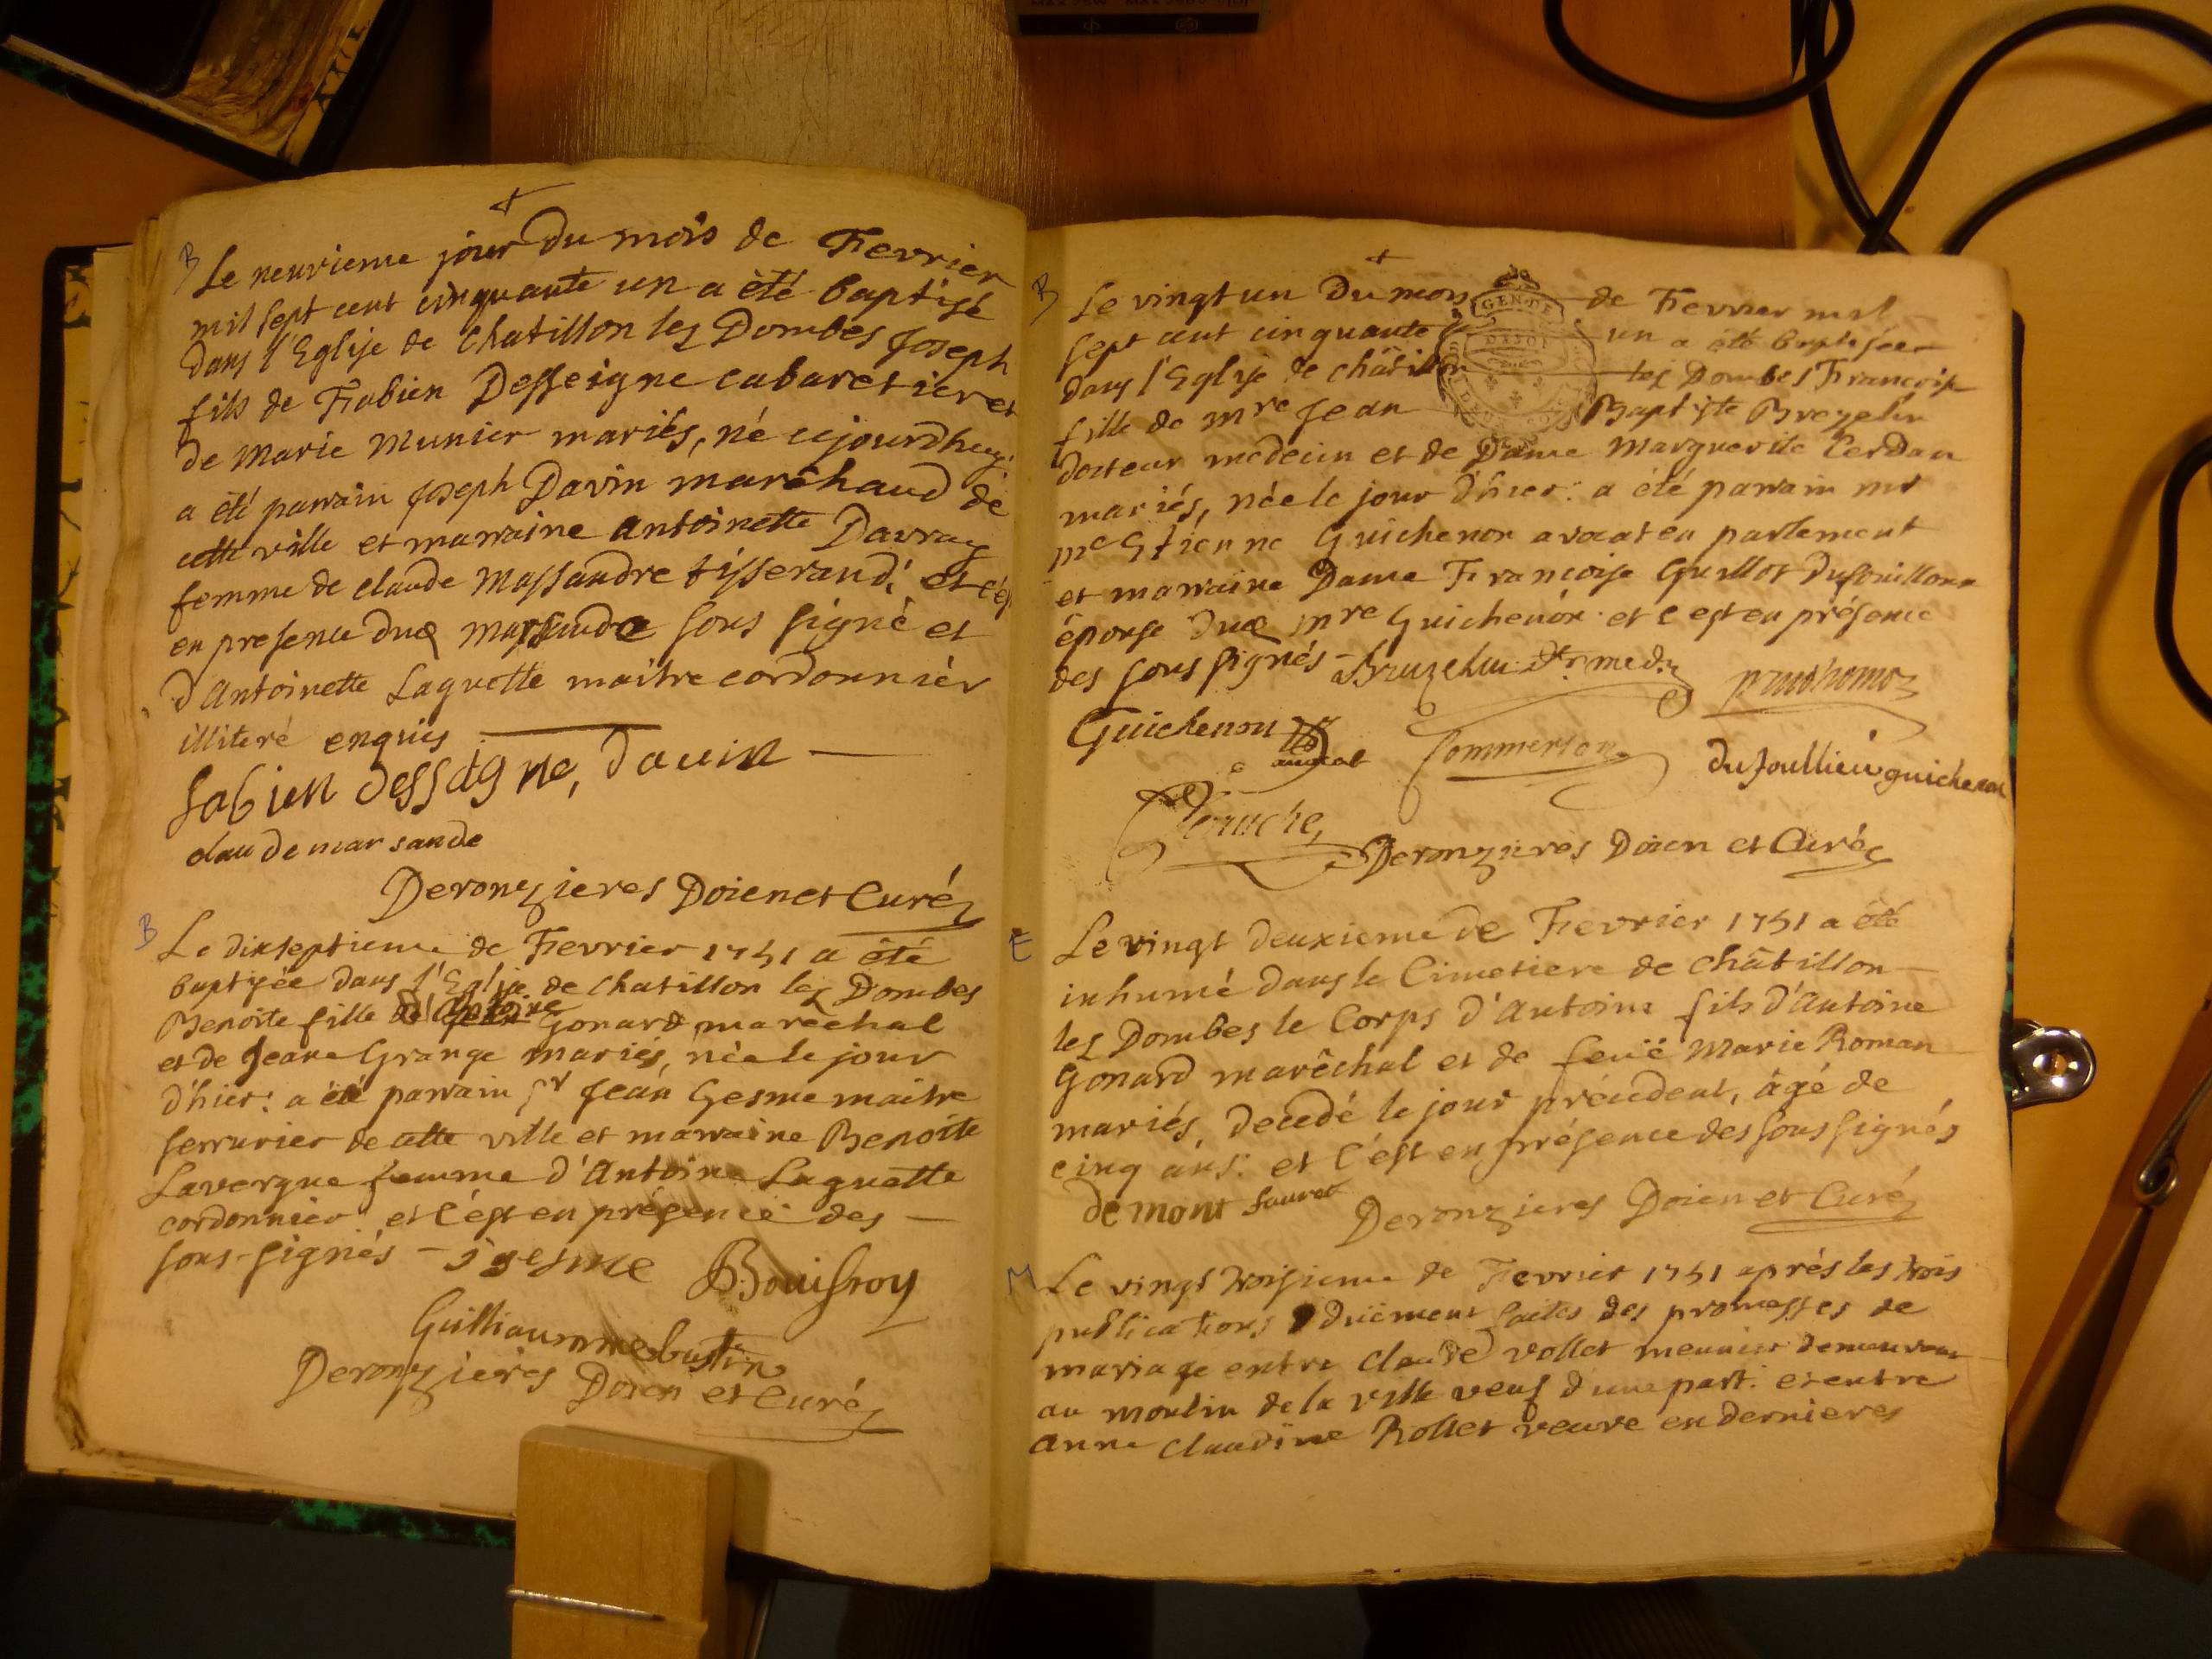 B
Le neuvieme jour du mois de Fevrier
mil sept cent cinquante un a été baptisé
dans l'Eglise de Chatillon les Dombes Joseph
fils de Fabien Desseigne cabaretier et
de Marie Munier mariés, né cejourdhuy:
a été parrain Joseph Davin marêchaud de
cette ville et marraine Antoinette Davray
femme de claude Massandre tisserand: et c'est
en presence dud Massandre sous signé et
d'Antoinette Laguette maître cordonnier
illiteré enquis
fabien dessagne, davin
claude marsande
Deronzieres Doien et Curé
B
Le dixseptieme de Fevrier 1751 a été
baptisée dans l'Eglise de Chatillon les Dombes
Benoite fille d'Antoine Gonard marêchal
et de Jeane Grange mariés, née le jour
d'hier: a été parrain sr Jean Gesme maitre
serrurier de cette ville et marraine Benoite
Lavergne femme d'Antoine Laguette
cordonnier. et c'est en présence des
sous-signés - j gesme Bouisroy
Guilliaumme bustin
Deronzieres Doien et Curé
B
Le vingt un Du mois de Fevrier mil
sept cent cinquante un a été baptisée
dans l'Eglise de châtillon les Dombes Françoise
fille de mre Jean Baptiste
docteur medecin et de Dame Marguerite Cerdan
mariés, née le jour d'hier: a été parrain mr
me Etienne Guichenon avocat en parlement
et marraine Dame Françoise Guillot
épouse dud mre Guichenon. et c'est en présence
des sous signés - dr. med. prudhomme
Guichenon avocat Commerson guichenon
Deronzieres Doien et Curé
E
Le vingt deuxieme de Fevrier 1751 a été
inhumé dans le Cimetiere de châtillon
les Dombes le Corps d'Antoine fils d'Antoine
Gonard marêchal et de feuë Marie Roman
mariés, decedé le jour précedent, âgé de
cinq ans: et c'est en présence des sous signés
demont fauret Deronzieres Doien et Curé
M
Le vingt troisieme de Fevrier 1751 aprés les trois
publications duëment faites des promesses de
mariage entre claude Vollet meunier demeurant
au moulin de la ville veuf d'une part. et entre
anne claudine Rollet veuve en dernieres